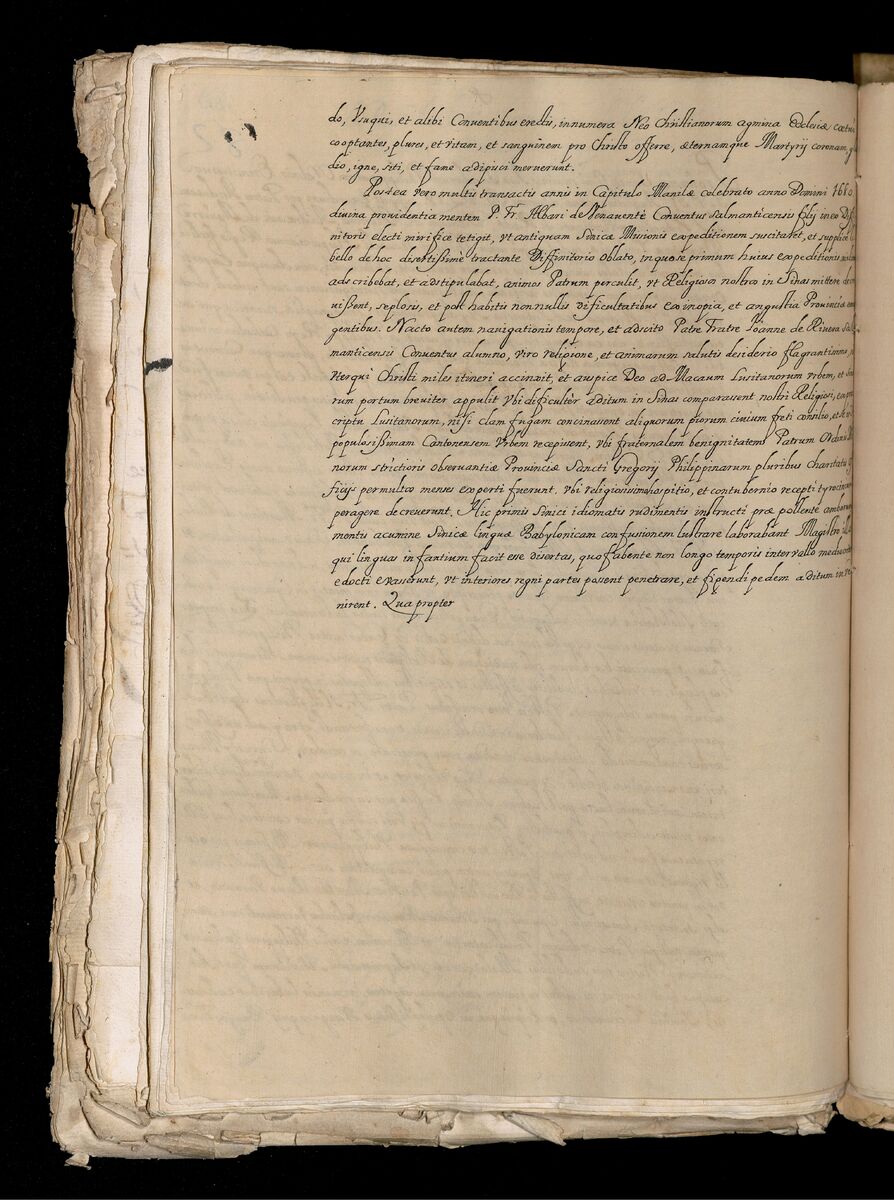 do, Vsuqui, et alibi Conventibus erectis, innumera Neo Christianorum agmina Ecclesiæ cœtui
cooptantes, plures, et vitam, et sanguinem pro Christo offerre, æternamque Martyrij coronam,
dio, igne, siti, et fame adipisci meruerunt.
Postea vero multis transactis annis in Capitulo Manilæ celebrato anno Domini
divina providentia mentem P. Fr. Albari de Venavente Conventus Salmanticensis filij in eo
nitoris electi mirifice tetigit, vt antiquam Sinicæ Missionis expeditionem suscitaret, et supplice
bello de hoc disertissimè tractante Diffinitorio oblato, in quo se primum huius expeditionis
adscribebat, et adstipulabat, animos Patrum perculit, vt Religiosos nostros in Sinas mittere
uissent, seplosis, et post habitis nonnullis dificultatibus ex inopia, et angustia Provinciæ
gentibus. Nacto autem navigationis tempore, et adscito Patre Fratre Ioanne de Rivera Sal
manticensis Conventus alumno, viro religione, et animarum salutis desiderio flagrantissimo,
vterqui Christi miles itineri accinxit, et auspice Deo ad Macaum Lusitanorum vrbem, et
rum portum breviter appulit Vbi dificultèr aditum in Sinas comparassent nostri Religiosi,
criptu Lusitanorum, nisi clam fugam concinassent aliquorum piorum civium freti consilio, et
populosissimam Cantonensem Vrbem recepissent, vbi fraternalem benignitatem Patrum Ordinis
norum strictioris observantiæ Provinciæ Sancti Gregorij Philippinarum pluribus charitatis
ficijs permultos menses experti fuerunt. vbi religiosissimo hospitio, et contubernio recepti
peragere decreverunt. Hic primis Sinici idiomatis rudimentis instructi præ pollente amborum
mentis acumine Sinicæ linguæ Babylonicam confusionem lustrare laborabant Magistro
qui linguas infantium facit esse disertas, quo fabente non longo temporis intervallo
edocti evasserunt, vt interiores regni partes possent penetrare, et figendi pedem aditum
nirent. Quapropter